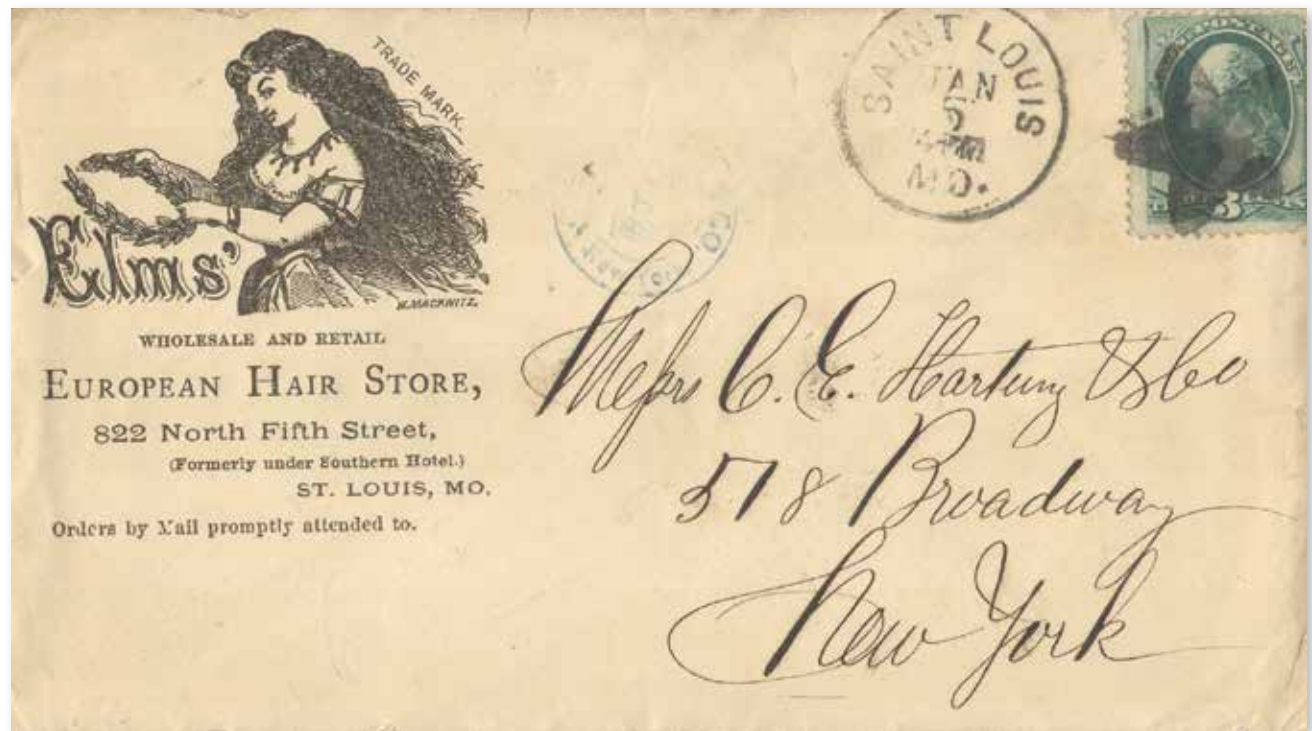 TRADE MARK.
Elms'
M. MACKWITZ.
WHOLESALE AND RETAIL
EUROPEAN HAIR STORE,
822 North Fifth Street,
(Formerly under Southern Hotel.)
ST. LOUIS, MO.
Orders by Mail promptly attended to.
SAINT LOUIS
JAN
5
MO.
3
Messrs C. E. Hartung & Co
518 Broadway
New York